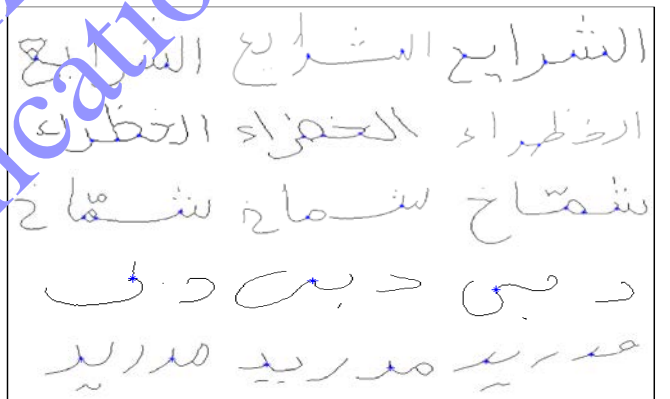 الشرايع الشرايع الشرايع
الخضراء الخضراء الخظراء
شمّاخ شماخ شمّاخ
دبي دبي دبي
مدريد مدريد مدريد